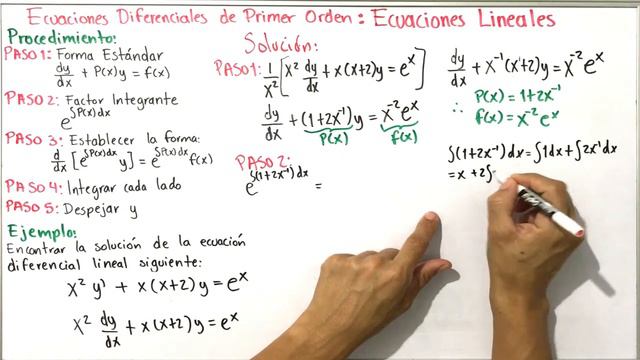 Ecuaciones Diferenciales de Primer Orden: Ecuaciones Lineales
Procedimiento:
PASO 1: Forma Estándar
dy/dx + P(x)y = f(x)
PASO 2: Factor Integrante
e^∫P(x)dx
PASO 3: Establecer la forma:
d/dx [e^∫P(x)dx y] = e^∫P(x)dx f(x)
PASO 4: Integrar cada lado
PASO 5: Despejar y
Ejemplo:
Encontrar la solución de la ecuación
diferencial lineal siguiente:
x² y' + x(x+2)y = e^x
x² dy/dx + x(x+2)y = e^x
Solución:
PASO 1: 1/x² [x² dy/dx + x(x+2)y = e^x]
dy/dx + (1+2x⁻¹)y = x⁻²e^x
P(x) f(x)
PASO 2:
e^∫(1+2x⁻¹)dx =
dy/dx + x⁻¹(x+2)y = x⁻²e^x
∴ P(x) = 1+2x⁻¹
f(x) = x⁻²e^x
∫(1+2x⁻¹)dx = ∫1dx + ∫2x⁻¹dx
= x + 2∫